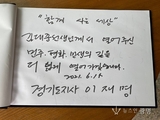 "함께 사는 세상"
김대중선생님께서 열어주신
민주, 평화, 민생의 길을
더 넓게 열어가겠습니다.
2021. 6. 15
경기도지사 이 재 명